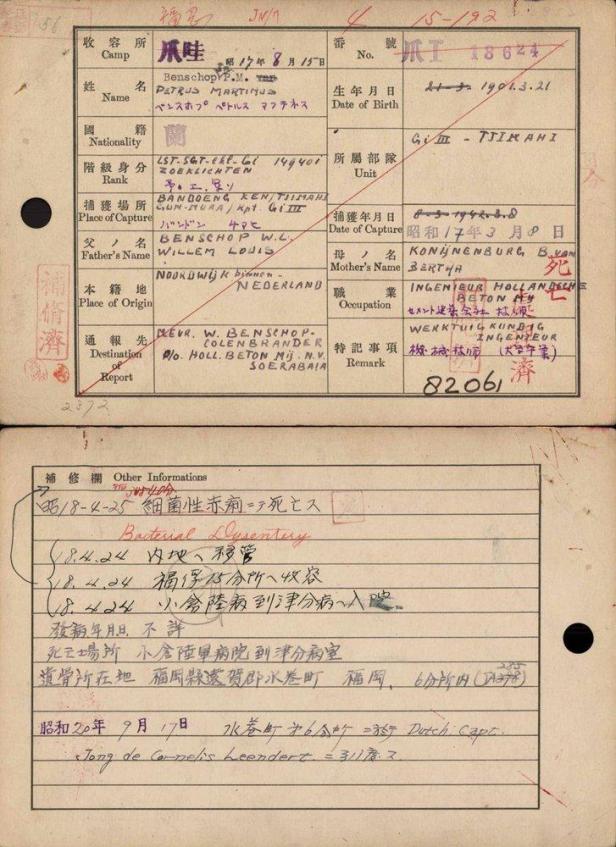 福岡 JM/M 4 15-192
56
收容所 Camp 爪哇 昭17年8月15日
番號 No. 爪I 18624
姓名 Name Benschop, P.M. van
PETRUS MARTINUS
ベンスホプ ペトルス マフチネス
生年月日 Date of Birth 21-3- 1901.3.21
國籍 Nationality 蘭
所屬部隊 Unit Gi III - TJIMAHI
階級身分 Rank LST-SGT-ekl-Gi 149401
ZOEKLICHTEN
捕獲場所 Place of Capture BANDOENG KEN/TJIMAHI
GUN-MURA/kpt. Gi III
バンドン チマヒ
捕獲年月日 Date of Capture 8-3-1942.3.8
昭和17年3月8日
父ノ名 Father's Name BENSCHOP W.L.
WILLEM LOUIS
母ノ名 Mother's Name KONIJNENBURG B. van
BERTHA
死亡
本籍地 Place of Origin NOORDWIJK binnen-
NEDERLAND
職業 Occupation INGENIEUR HOLLANDSCHE
BETON MIJ
セメント建築会社 技師
通報先 Destination of Report MEVR. W. BENSCHOP-
COLENBRANDER
p/o HOLL. BETON Mij. N.V.
SOERABAIA
特記事項 Remark WERKTUIGKUNDIG
INGENIEUR
機械技師 (大学卒業)
補脩濟
濟
2372
82061
補修欄 Other Informations
昭18-4-25 細菌性赤痢ニテ死亡ス
Bacterial Dysentery
18.4.24 内地へ移管
18.4.24 福俘15分所へ收容
18.4.24 小倉陸病到津分病へ入院
發病年月日 不詳
死亡場所 小倉陸軍病院到津分病室
遺骨所在地 福岡縣遠賀郡水巻町 福岡 6分所内
昭和20年9月17日 水巻町第6分所ニ於テ Dutch Capt.
Jong de Cornelis Leendert ニ引渡ス